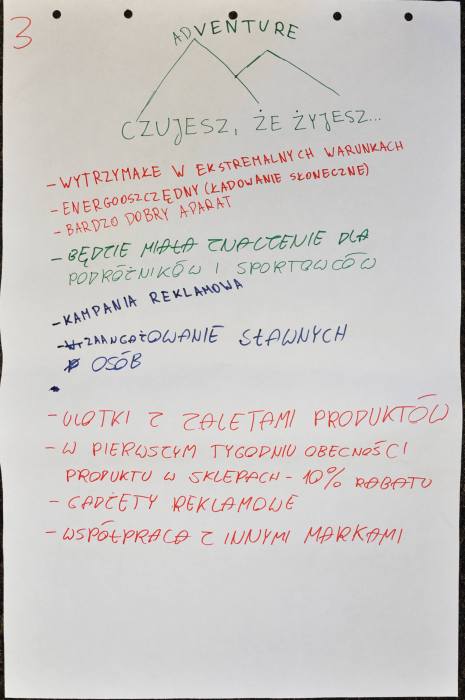 3
ADVENTURE
CZUJESZ, ŻE ŻYJESZ...
- WYTRZYMAŁE W EKSTREMALNYCH WARUNKACH
- ENERGOOSZCZĘDNY (ŁADOWANIE SŁONECZNE)
- BARDZO DOBRY APARAT
- BĘDZIE MIAŁA ZNACZENIE DLA
PODRÓŻNIKÓW I SPORTOWCÓW
- KAMPANIA REKLAMOWA
- ZAANGAŻOWANIE SŁAWNYCH
OSÓB
- ULOTKI Z ZALETAMI PRODUKTÓW
- W PIERWSZYM TYGODNIU OBECNOŚCI
PRODUKTU W SKLEPACH - 10% RABATU
- GADŻETY REKLAMOWE
- WSPÓŁPRACA Z INNYMI MARKAMI